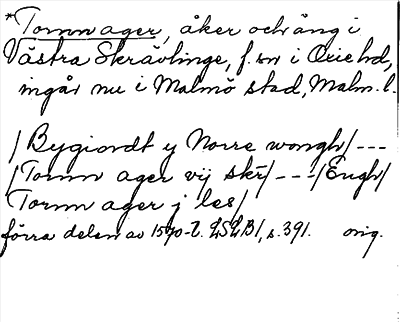 *Tornn ager, åker och äng i
Västra Skrävlinge, f. sn i Oxie hd,
ingår nu i Malmö stad, Malm. l.
/Bygiordt y Norre wongh/---
/Tornn ager vij skr/---/Engh/
Tornn ager j les/
förra delen av 1590-t. LSLB1, s. 391. orig.